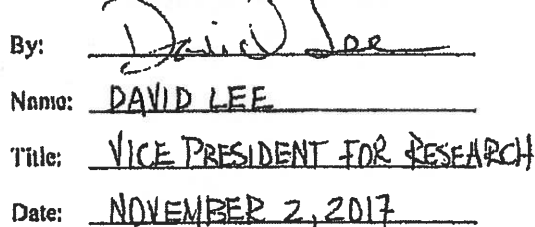 By: David Lee
Name: DAVID LEE
Title: VICE PRESIDENT FOR RESEARCH
Date: NOVEMBER 2, 2017